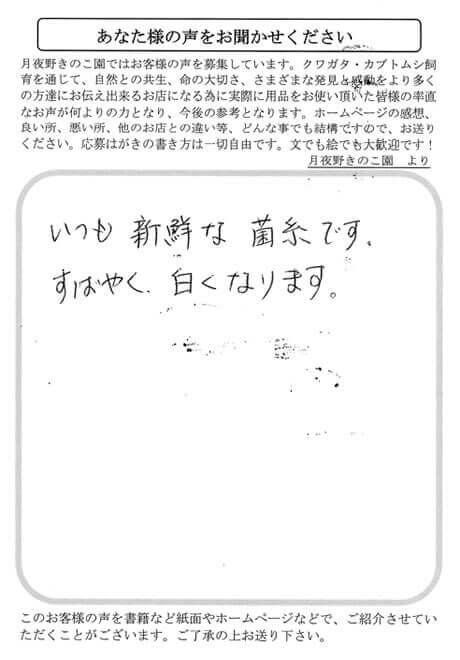 あなた様の声をお聞かせください
月夜野きのこ園ではお客様の声を募集しています。クワガタ・カブトムシ飼
育を通じて、自然との共生、命の大切さ、さまざまな発見と感動をより多く
の方達にお伝え出来るお店になる為に実際に用品をお使い頂いた皆様の率直
なお声が何よりの力となり、今後の参考となります。ホームページの感想、
良い所、悪い所、他のお店との違い等、どんな事でも結構ですので、お送り
ください。応募はがきの書き方は一切自由です。文でも絵でも大歓迎です！
月夜野きのこ園　より
いつも 新鮮な 菌糸です、
すばやく、白くなります。
このお客様の声を書籍など紙面やホームページなどで、ご紹介させてい
ただくことがございます。ご了承の上お送り下さい。